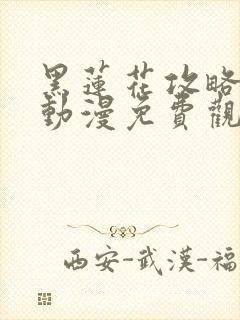 黑蓮花攻略
動漫免費觀
西安-武漢-福